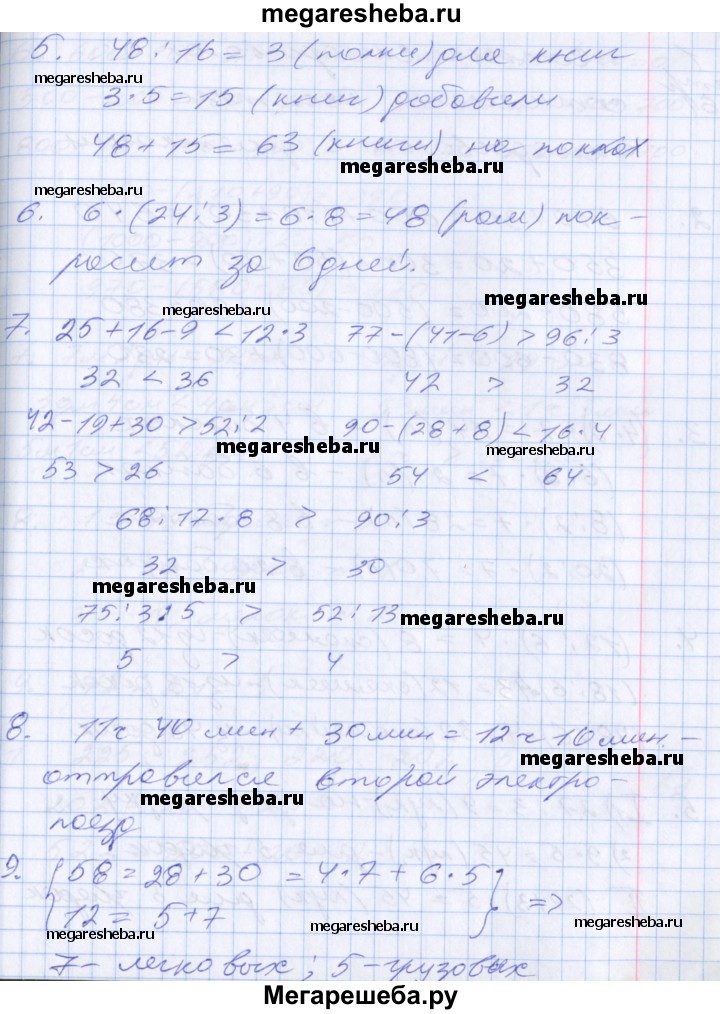 megaresheba.ru
5. 48 : 16 = 3 (полки) для книг
megaresheba.ru
3 · 5 = 15 (книг) добавили
megaresheba.ru
48 + 15 = 63 (книги) на полках
megaresheba.ru
megaresheba.ru
6. 6 · (24 : 3) = 6 · 8 = 48 (рам) пок-
расит за 6 дней.
megaresheba.ru
megaresheba.ru
7. 25 + 16 - 9 < 12 · 3 77 - (41 - 6) > 96 : 3
32 < 36 42 > 32
42 - 19 + 30 > 52 : 2 90 - (28 + 8) < 16 · 4
megaresheba.ru
megaresheba.ru
53 > 26 54 < 64
68 : 17 · 8 > 90 : 3
32 > 30
megaresheba.ru
75 : 3 : 5 > 52 : 13
megaresheba.ru
5 > 4
8. 11 ч 40 мин + 30 мин = 12 ч 10 мин -
megaresheba.ru
отправился второй электро-
megaresheba.ru
поезд
9. { 58 = 28 + 30 = 4 · 7 + 6 · 5
12 = 5 + 7 } =>
megaresheba.ru
megaresheba.ru
megaresheba.ru
7 - легковых ; 5 - грузовых
Мегарешеба.ру